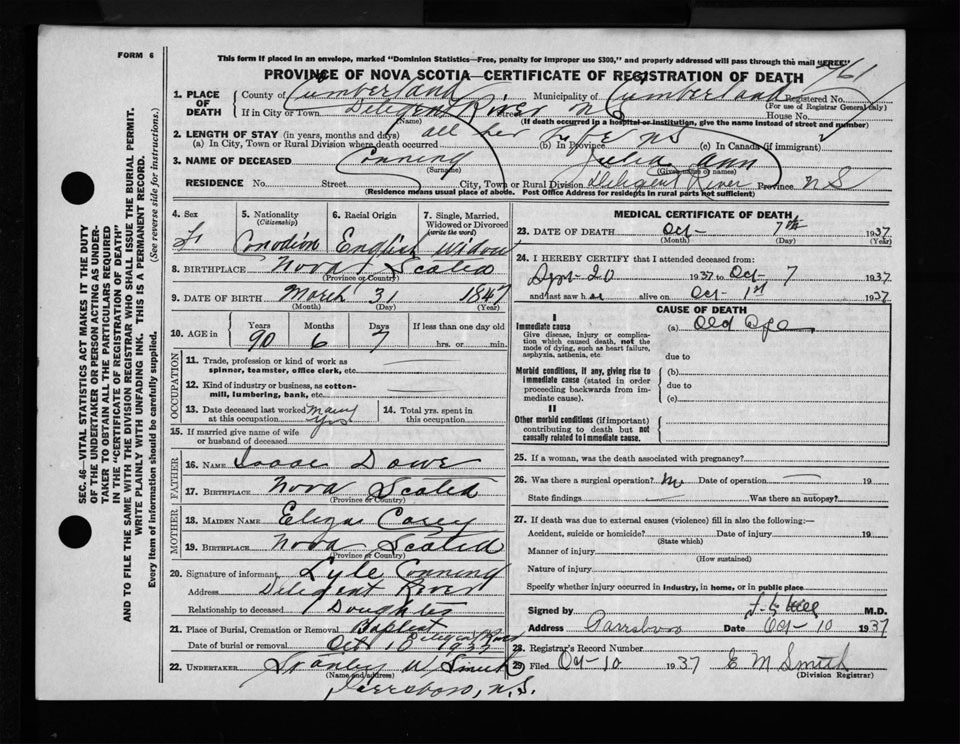 FORM 6
This form if placed in an envelope, marked "Dominion Statistics—Free, penalty for improper use $300," and properly addressed will pass through the mail "FREE"
PROVINCE OF NOVA SCOTIA—CERTIFICATE OF REGISTRATION OF DEATH 761
1. PLACE OF DEATH County of Cumberland Municipality of Cumberland Registered No.
(For use of Registrar General only)
If in City or Town Diligent River N S Street House No.
(Name) (If death occurred in a hospital or institution, give the name instead of street and number)
2. LENGTH OF STAY (in years, months and days) all her life N S
(a) In City, Town or Rural Division where death occurred (b) In Province (c) In Canada (if immigrant)
3. NAME OF DECEASED Conning Julia Ann
(Surname) (Given name or names)
RESIDENCE No. Street City, Town or Rural Division Diligent River Province N S
(Residence means usual place of abode. Post Office Address for residents in rural parts not sufficient)
4. Sex 5. Nationality (Citizenship) 6. Racial Origin 7. Single, Married, Widowed or Divorced (write the word)
F. Canadian English Widow
8. BIRTHPLACE Nova Scotia
(Province or Country)
9. DATE OF BIRTH March 31 1847
(Month) (Day) (Year)
10. AGE in Years Months Days If less than one day old
90 6 7 hrs. or min.
OCCUPATION
11. Trade, profession or kind of work as spinner, teamster, office clerk, etc.
12. Kind of industry or business, as cotton-mill, lumbering, bank, etc.
13. Date deceased last worked at this occupation many yrs
14. Total yrs. spent in this occupation
15. If married give name of wife or husband of deceased
FATHER
16. NAME Isaac Dowe
17. BIRTHPLACE Nova Scotia
(Province or Country)
MOTHER
18. MAIDEN NAME Casey
19. BIRTHPLACE Nova Scotia
(Province or Country)
20. Signature of informant Lyle Conning
Address Diligent River
Relationship to deceased Doughter
21. Place of Burial, Cremation or Removal Baptist Diligent River
Date of burial or removal Oct 10 1937
22. UNDERTAKER Stanley W Smith
(Name and address)
Parrsboro, N.S.
MEDICAL CERTIFICATE OF DEATH
23. DATE OF DEATH Oct- 7th 1937
(Month) (Day) (Year)
24. I HEREBY CERTIFY that I attended deceased from:
Sept-20 1937 to Oct- 7 1937
and last saw h er alive on Oct- 1st 1937
CAUSE OF DEATH
I
Immediate cause
Give disease, injury or complication which caused death, not the mode of dying, such as heart failure, asphyxia, asthenia, etc
(a) Old Age
due to
Morbid conditions, if any, giving rise to immediate cause (stated in order proceeding backwards from immediate cause).
(b)
due to
(c)
II
Other morbid conditions (if important) contributing to death but not causally related to immediate cause.
25. If a woman, was the death associated with pregnancy?
26. Was there a surgical operation? No Date of operation 19
State findings Was there an autopsy?
27. If death was due to external causes (violence) fill in also the following:—
Accident, suicide or homicide? Date of injury 19
(State which)
Manner of injury
(How sustained)
Nature of injury
Specify whether injury occurred in industry, in home, or in public place
Signed by Hill M.D.
Address Parrsboro Date Oct- 10 1937
28. Registrar's Record Number
29. Filed Oct-10 1937 E M Smith
(Division Registrar)
SEC. 46—VITAL STATISTICS ACT MAKES IT THE DUTY
OF THE UNDERTAKER OR PERSON ACTING AS UNDER-
TAKER TO OBTAIN ALL THE PARTICULARS REQUIRED
IN THE "CERTIFICATE OF REGISTRATION OF DEATH"
AND TO FILE THE SAME WITH THE DIVISION REGISTRAR WHO SHALL ISSUE THE BURIAL PERMIT.
WRITE PLAINLY WITH UNFADING INK. THIS IS A PERMANENT RECORD.
Every item of information should be carefully supplied. (See reverse side for instructions.)